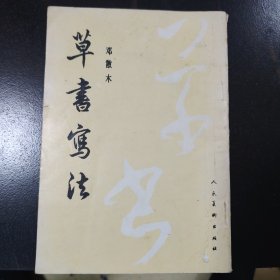 草書寫法
邓散木
草书
人民美術出版社